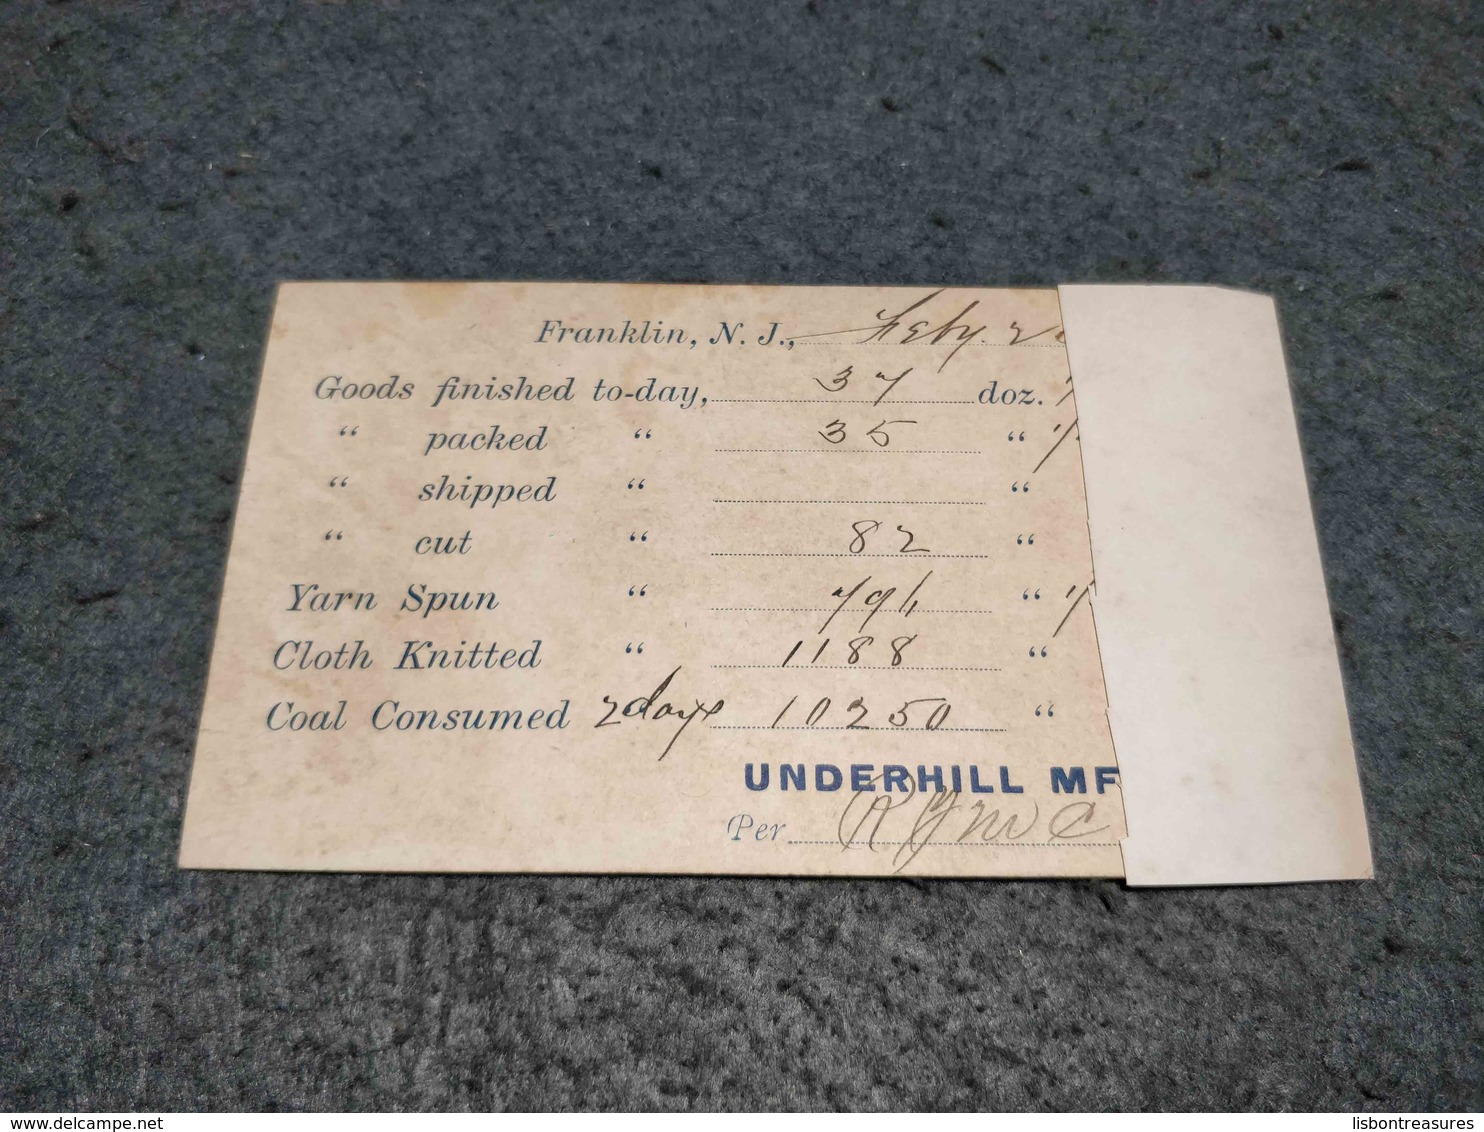 Franklin, N. J., Feby. 2
Goods finished to-day, 37 doz.
" packed " 35 "
" shipped " "
" cut " 82 "
Yarn Spun " "
Cloth Knitted " 1188 "
Coal Consumed 2 days 10250 "
UNDERHILL MF
Per
delcampe.net
lisbontreasures